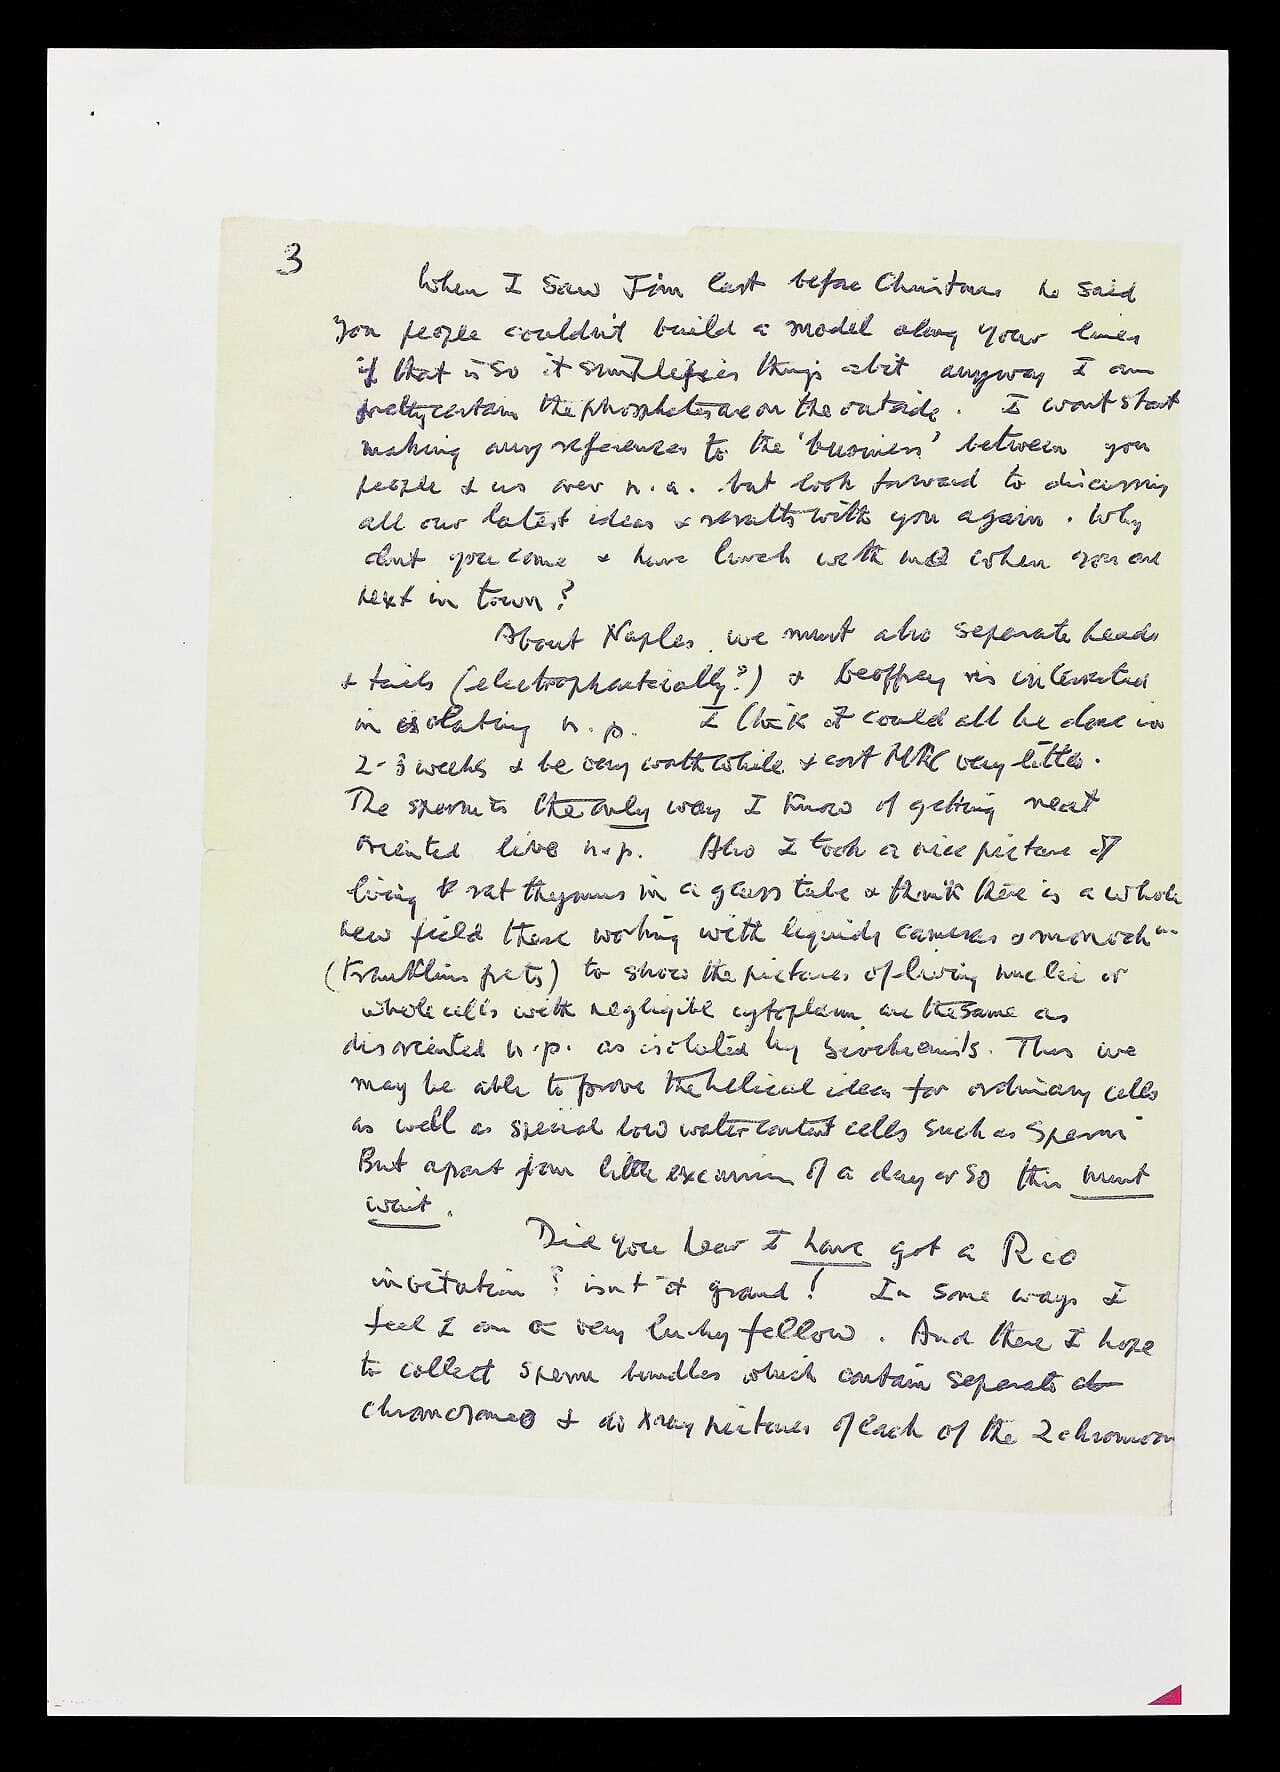 3
When I saw Jim last before Christmas he said
you people couldn't build a model along your lines
if that is so it simplifies things a bit anyway I am
pretty certain the phosphates are on the outside. I wont start
making any references to the 'business' between you
people & us over n.a. but look forward to discussing
all our latest ideas & results with you again. Why
dont you come & have lunch with me when you are
next in town?
About Naples, we must also separate heads
& tails (electrophoretically?) & Geoffrey is interested
in isolating n.p. I think it could all be done in
2-3 weeks & be very worth while & cost MRC very little.
The sperm is the only way I know of getting neat
oriented live n.p. Also I took a nice picture of
living rat thymus in a glass tube & think there is a whole
new field there working with liquids cameras & monoch
(Franklins pets) to show the pictures of living nuclei or
whole cells with negligible cytoplasm are the same as
disoriented n.p. as isolated by biochemists. Thus we
may be able to prove the helical idea for ordinary cells
as well as special low water content cells such as sperm
But apart from little excursion of a day or so this must
wait.
Did you hear I have got a Rio
invitation? isn't it grand! In some ways I
feel I am a very lucky fellow. And there I hope
to collect sperm bundles which contain separate ch
chromosomes & do Xray pictures of each of the 2 chromosom